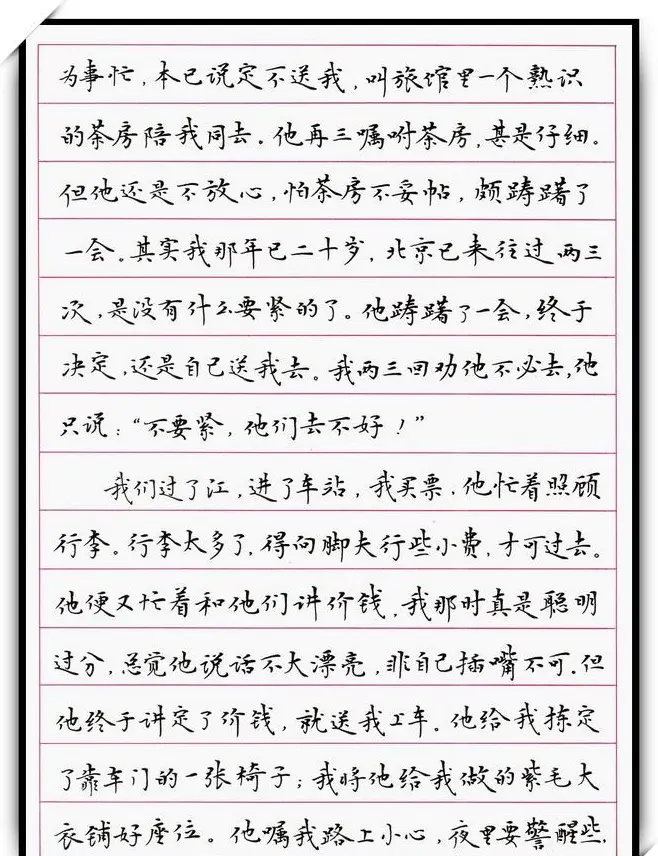 为事忙，本已说定不送我，叫旅馆里一个熟识
的茶房陪我同去。他再三嘱咐茶房，甚是仔细。
但他还是不放心，怕茶房不妥帖，颇踌躇了
一会。其实我那年已二十岁，北京已来往过两三
次，是没有什么要紧的了。他踌躇了一会，终于
决定，还是自己送我去。我两三回劝他不必去，他
只说：“不要紧，他们去不好！”
我们过了江，进了车站，我买票，他忙着照顾
行李。行李太多了，得向脚夫行些小费，才可过去。
他便又忙着和他们讲价钱，我那时真是聪明
过分，总觉他说话不大漂亮，非自己插嘴不可。但
他终于讲定了价钱，就送我上车。他给我拣定
了靠车门的一张椅子；我将他给我做的紫毛大
衣铺好座位。他嘱我路上小心，夜里要警醒些，